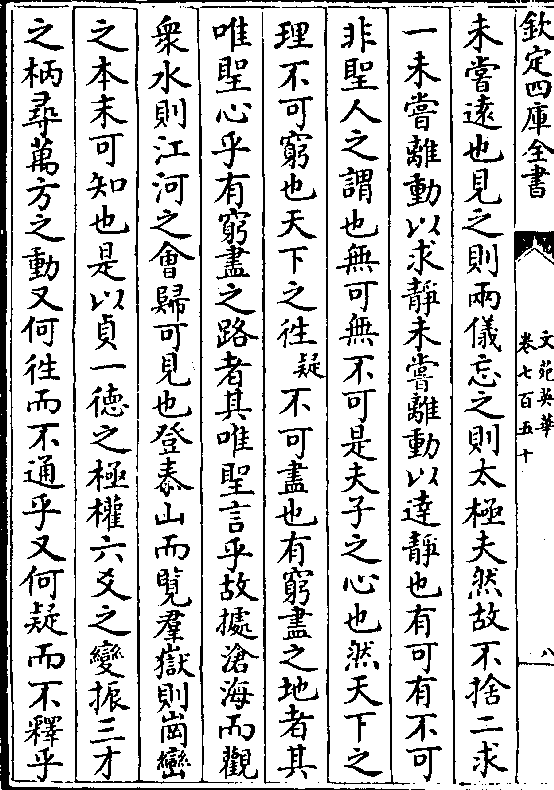 欽定四庫全書
文苑英華
卷七百五十
八
未嘗遠也見之則兩儀忘之則太極夫然故不捨二求
一未嘗離動以求靜未嘗離動以達靜也有可有不可
非聖人之謂也無可無不可是夫子之心也然天下之
理不可窮也天下之徃疑不可盡也有窮盡之地者其
唯聖心乎有窮盡之路者其唯聖言乎故據滄海而觀
衆水則江河之會歸可見也登泰山而覽羣嶽則崗巒
之本末可知也是以貞一德之極權六爻之變振三才
之柄尋萬方之動又何徃而不通乎又何疑而不釋乎